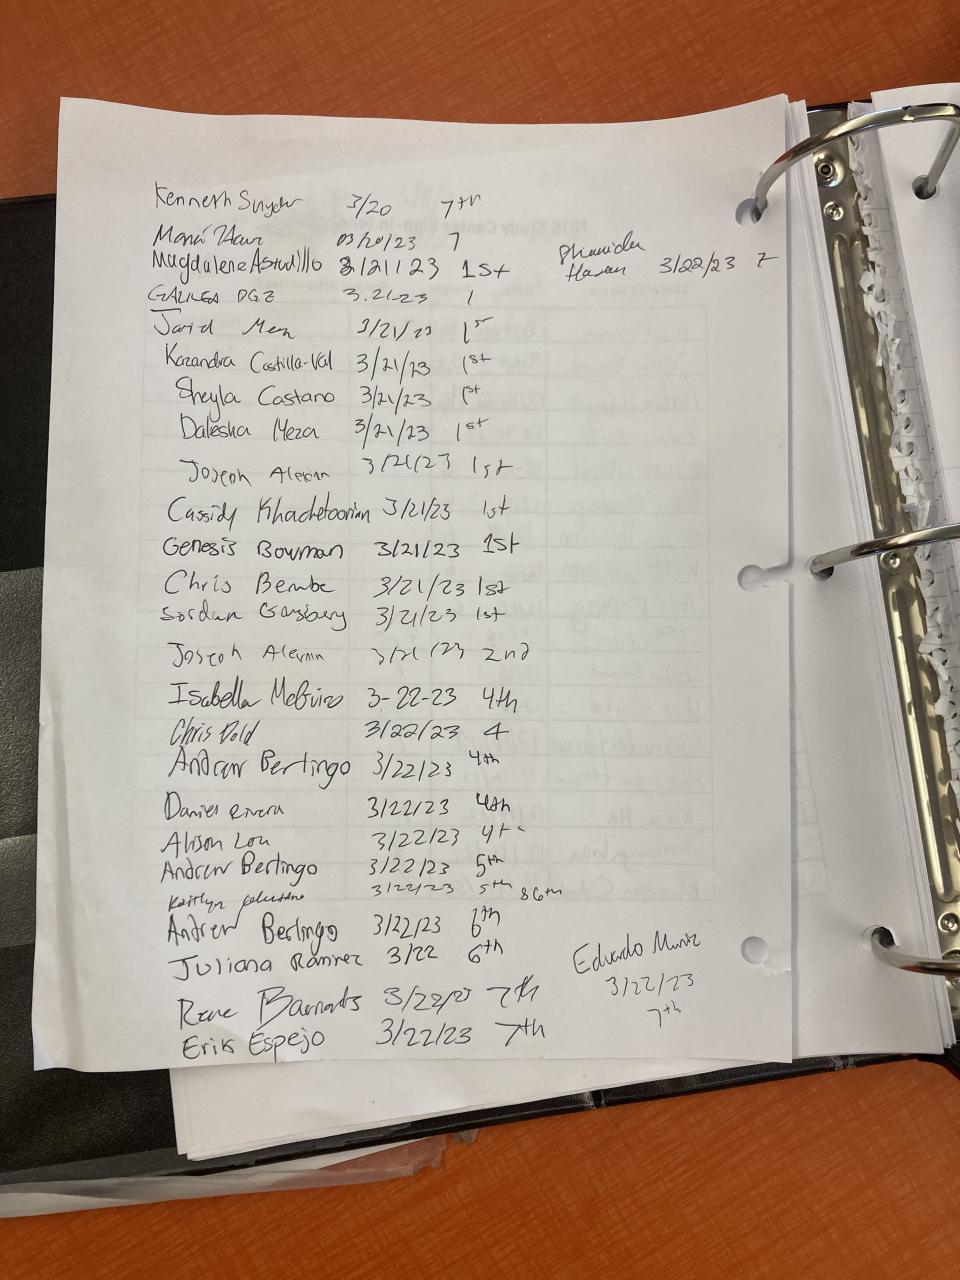 Kenneth Snyder 3/20 7th
03/20/23 7
Magdalene Astudillo 3/21/23 1st
Shanida Hasan 3/22/23 7
GALILEA DGZ 3.21.23 1
Jarid Meza 3/21/23 1st
Kazandra Castilla-Val 3/21/23 1st
Sheyla Castano 3/21/23 1st
Dalesha Meza 3/21/23 1st
Joseph Alexnin 3/21/23 1st
Cassidy Khachetoorian 3/21/23 1st
Genesis Bowman 3/21/23 1st
Chris Bembe 3/21/23 1st
Jordan 3/21/23 1st
Joseph 3/21/23 2nd
Isabella McGuire 3-22-23 4th
Chris Dold 3/22/23 4
Andrew Berlingo 3/22/23 4th
Daniel Rivera 3/22/23 4th
Alison Lou 3/22/23 4th
Andrew Berlingo 3/22/23 5th
Kaitlyn 3/22/23 5th & 6th
Andrew Berlingo 3/22/23 6th
Juliana Ramirez 3/22 6th
Eduardo Muniz
3/22/23
7th
Rene 3/22/23 7th
Erik Espejo 3/22/23 7th